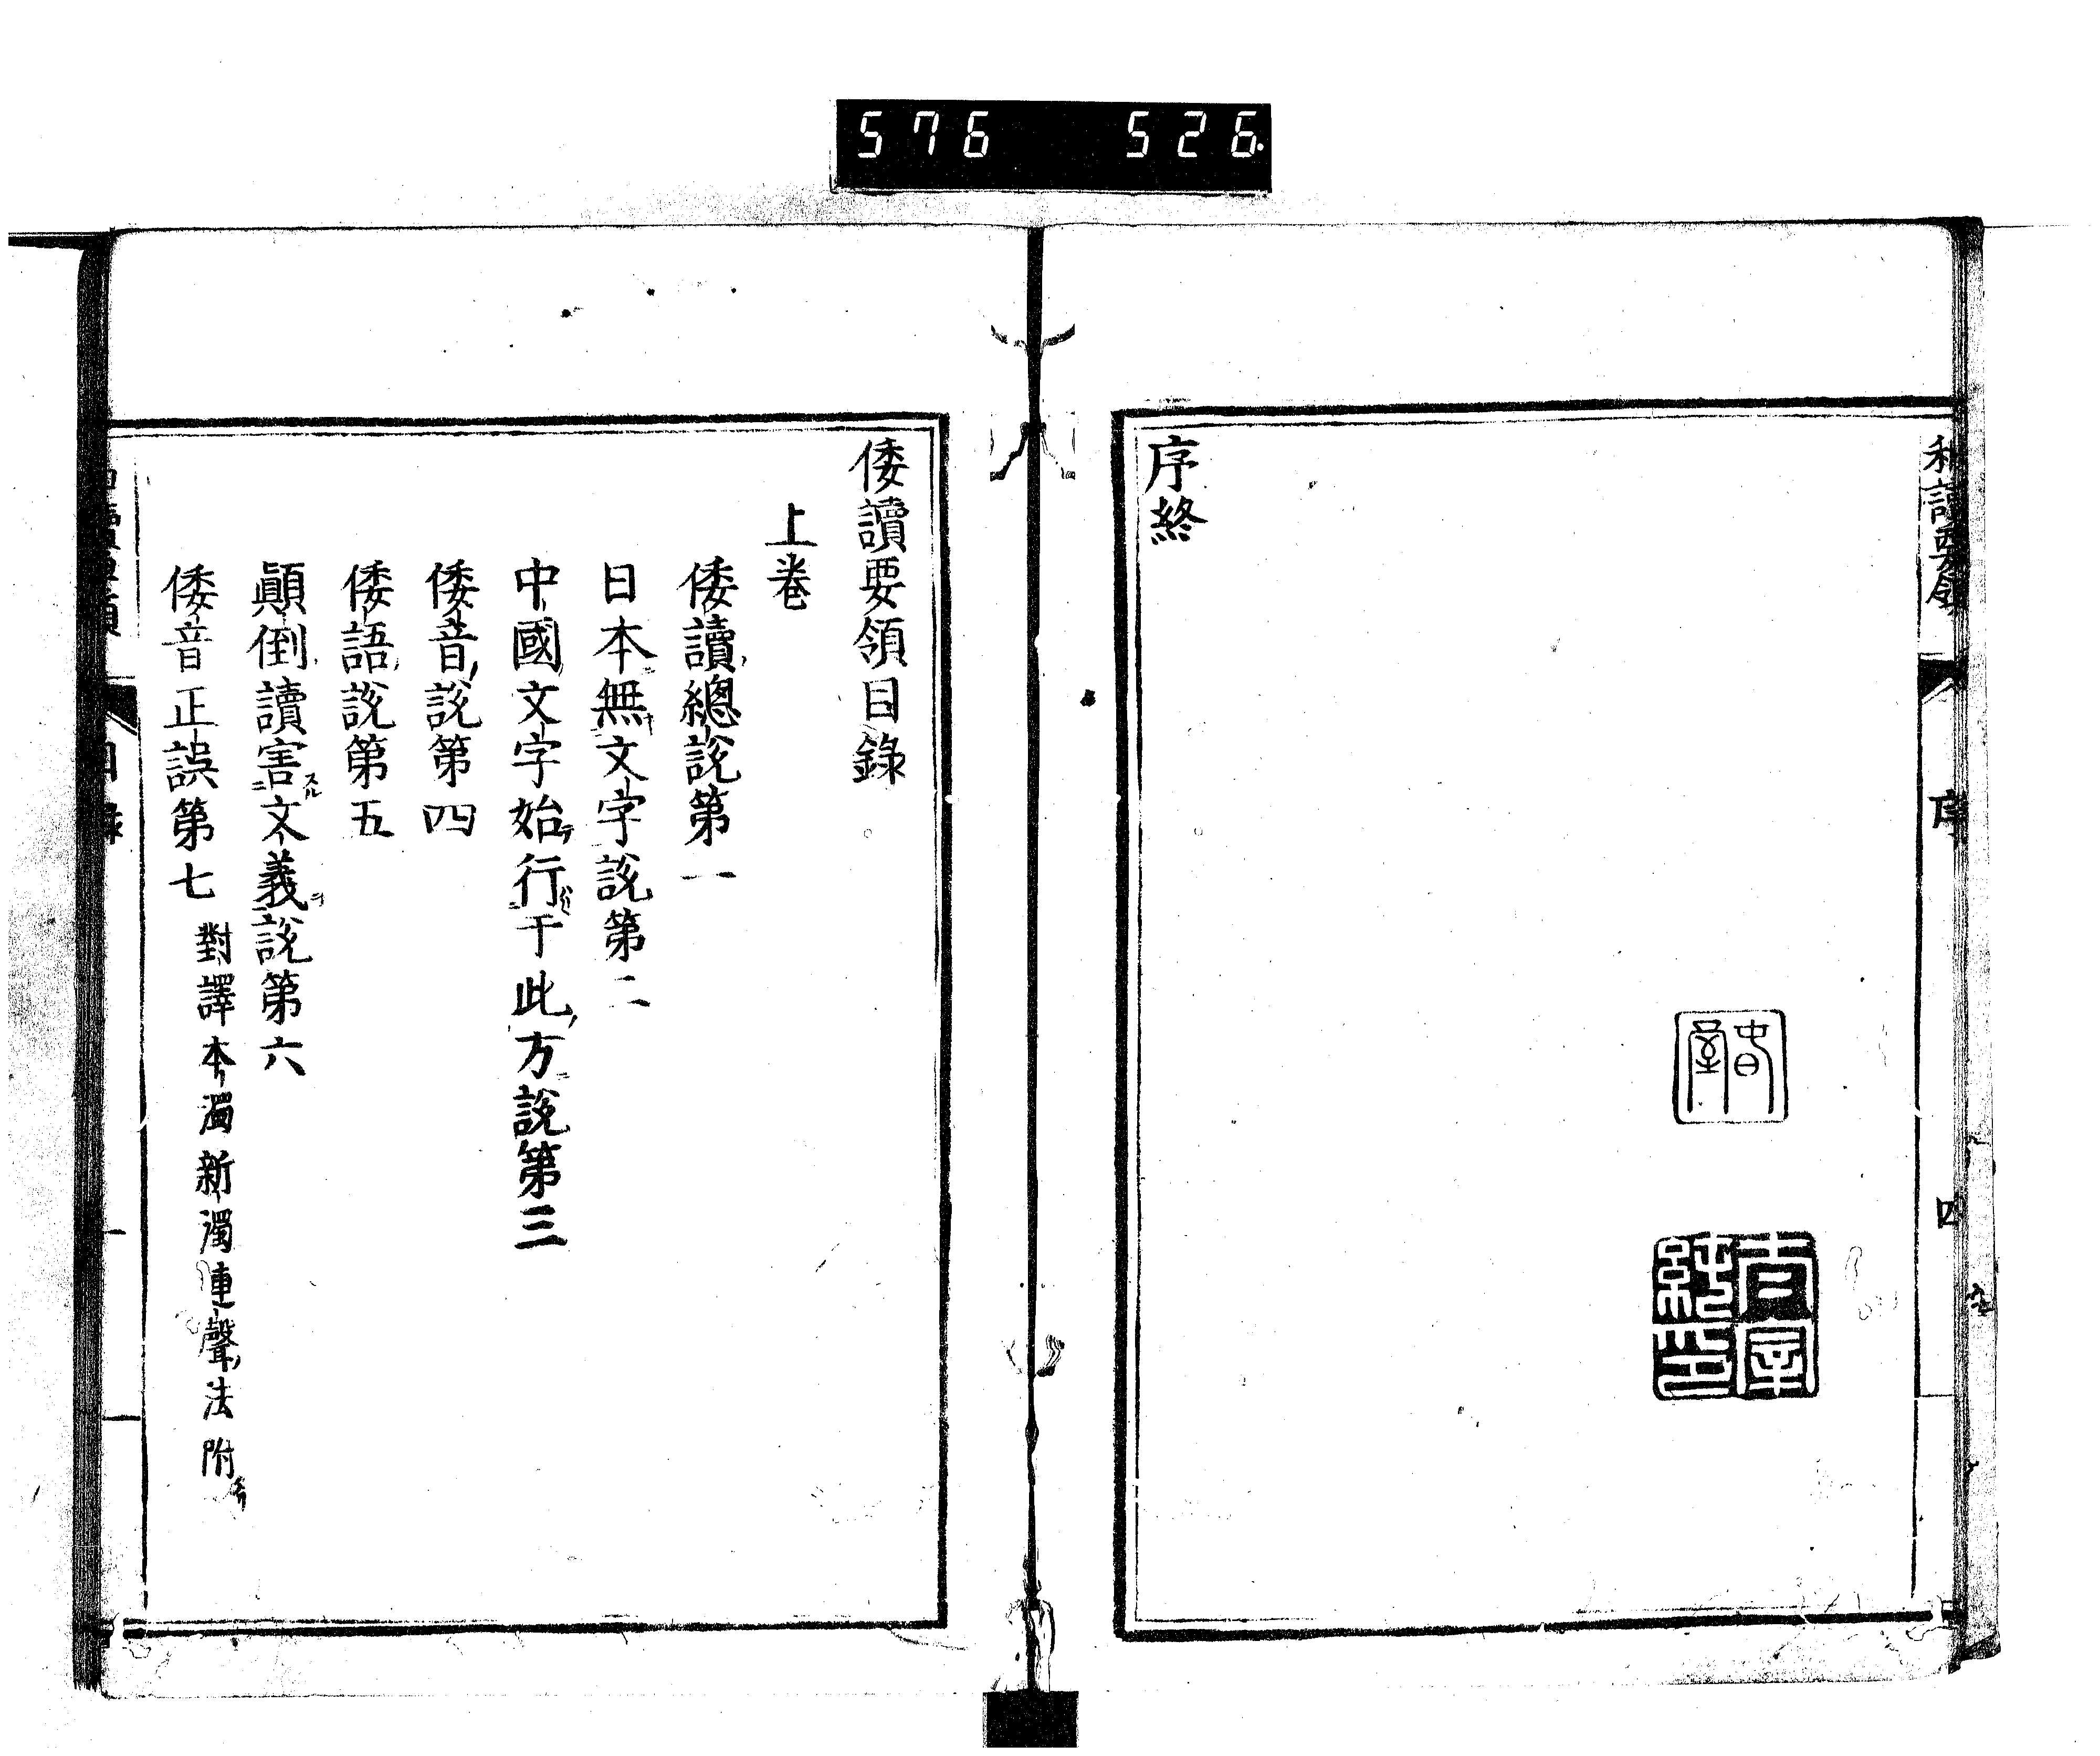 576 526
和讀要領
序
四
序終
倭讀要領目錄
上卷
倭讀總說第一
日本無文字說第二
中國文字始行于此方說第三
倭音說第四
倭語說第五
顚倒讀害文義說第六
倭音正誤第七 對譯本濁新濁連聲法附
目錄